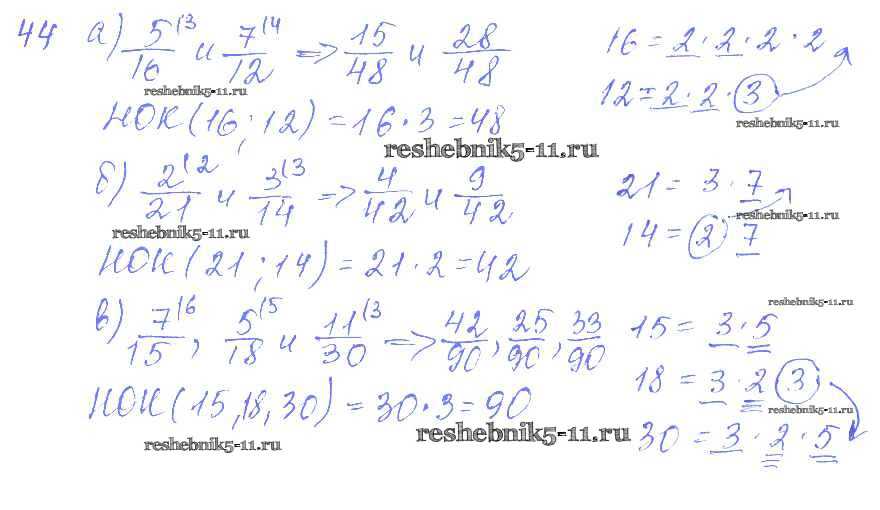 44 а) 5/16 (3 и 7/12 (4 => 15/48 и 28/48 16 = 2 · 2 · 2 · 2
reshebnik5-11.ru 12 = 2 · 2 · 3
НОК (16; 12) = 16 · 3 = 48 reshebnik5-11.ru
reshebnik5-11.ru
б) 2/21 (2 и 3/14 (3 => 4/42 и 9/42 21 = 3 · 7
reshebnik5-11.ru 14 = 2 · 7 reshebnik5-11.ru
НОК (21; 14) = 21 · 2 = 42
reshebnik5-11.ru
в) 7/15 (6, 5/18 (5 и 11/30 (3 => 42/90, 25/90, 33/90 15 = 3 · 5
18 = 3 · 2 3
НОК (15, 18, 30) = 30 · 3 = 90 reshebnik5-11.ru
reshebnik5-11.ru reshebnik5-11.ru 30 = 3 · 2 · 5